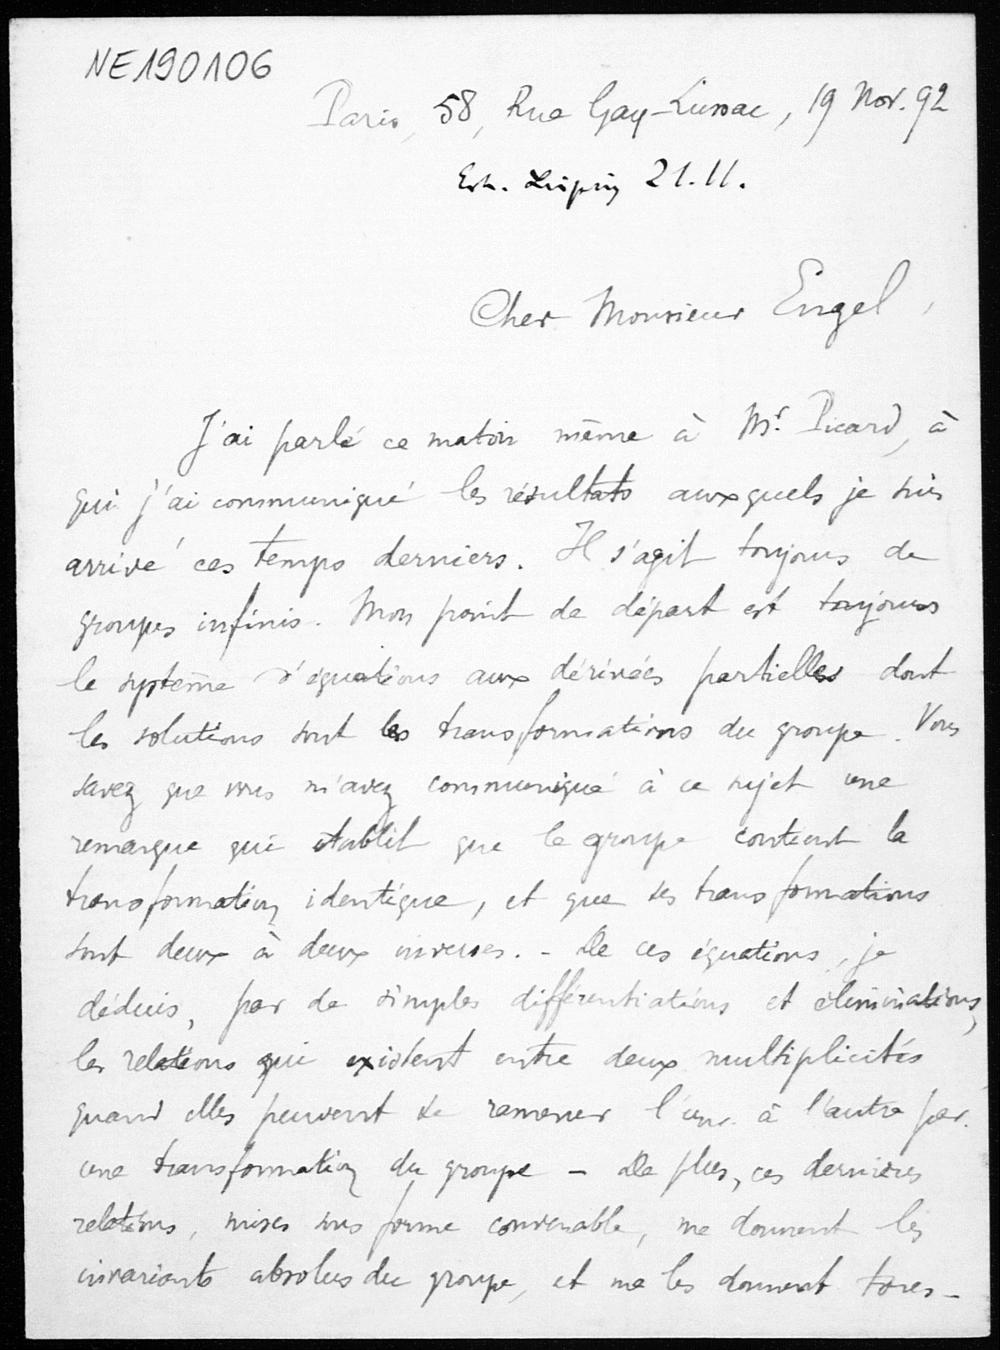 NE190106
Paris, 58, Rue Gay-Lussac, 19 Nov. 92
Erh. Leipzig 21.11.
Cher Monsieur Engel,
J'ai parlé ce matin même à Mr. Picard, à
qui j'ai communiqué les résultats auxquels je suis
arrivé ces temps derniers. Il s'agit toujours de
groupes infinis. Mon point de départ est toujours
le système d'équations aux dérivées partielles dont
les solutions sont les transformations du groupe. Vous
savez que vous m'avez communiqué à ce sujet une
remarque qui établit que le groupe contient la
transformation identique, et que ses transformations
sont deux à deux inverses. - De ces équations, je
déduis, par de simples différentiations et éliminations,
les relations qui existent entre deux multiplicités
quand elles peuvent se ramener l'une à l'autre par
une transformation du groupe - De plus, ces dernières
relations, mises sous forme convenable, me donnent les
invariants absolus du groupe, et me les donnent tous -